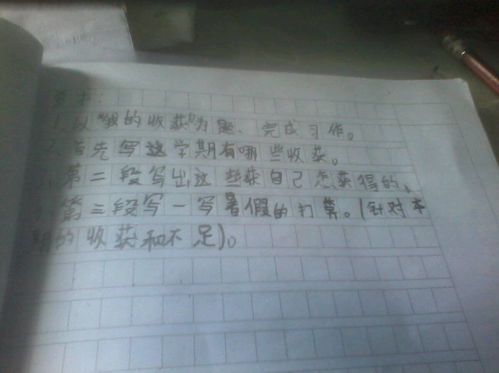 要求:
1.以“我的收获”为题、完成习作。
2.首先写这学期有哪些收获。
第二段写出这些获自己怎获得的。
第三段写一写暑假的打算。(针对本
期的收获和不足)。